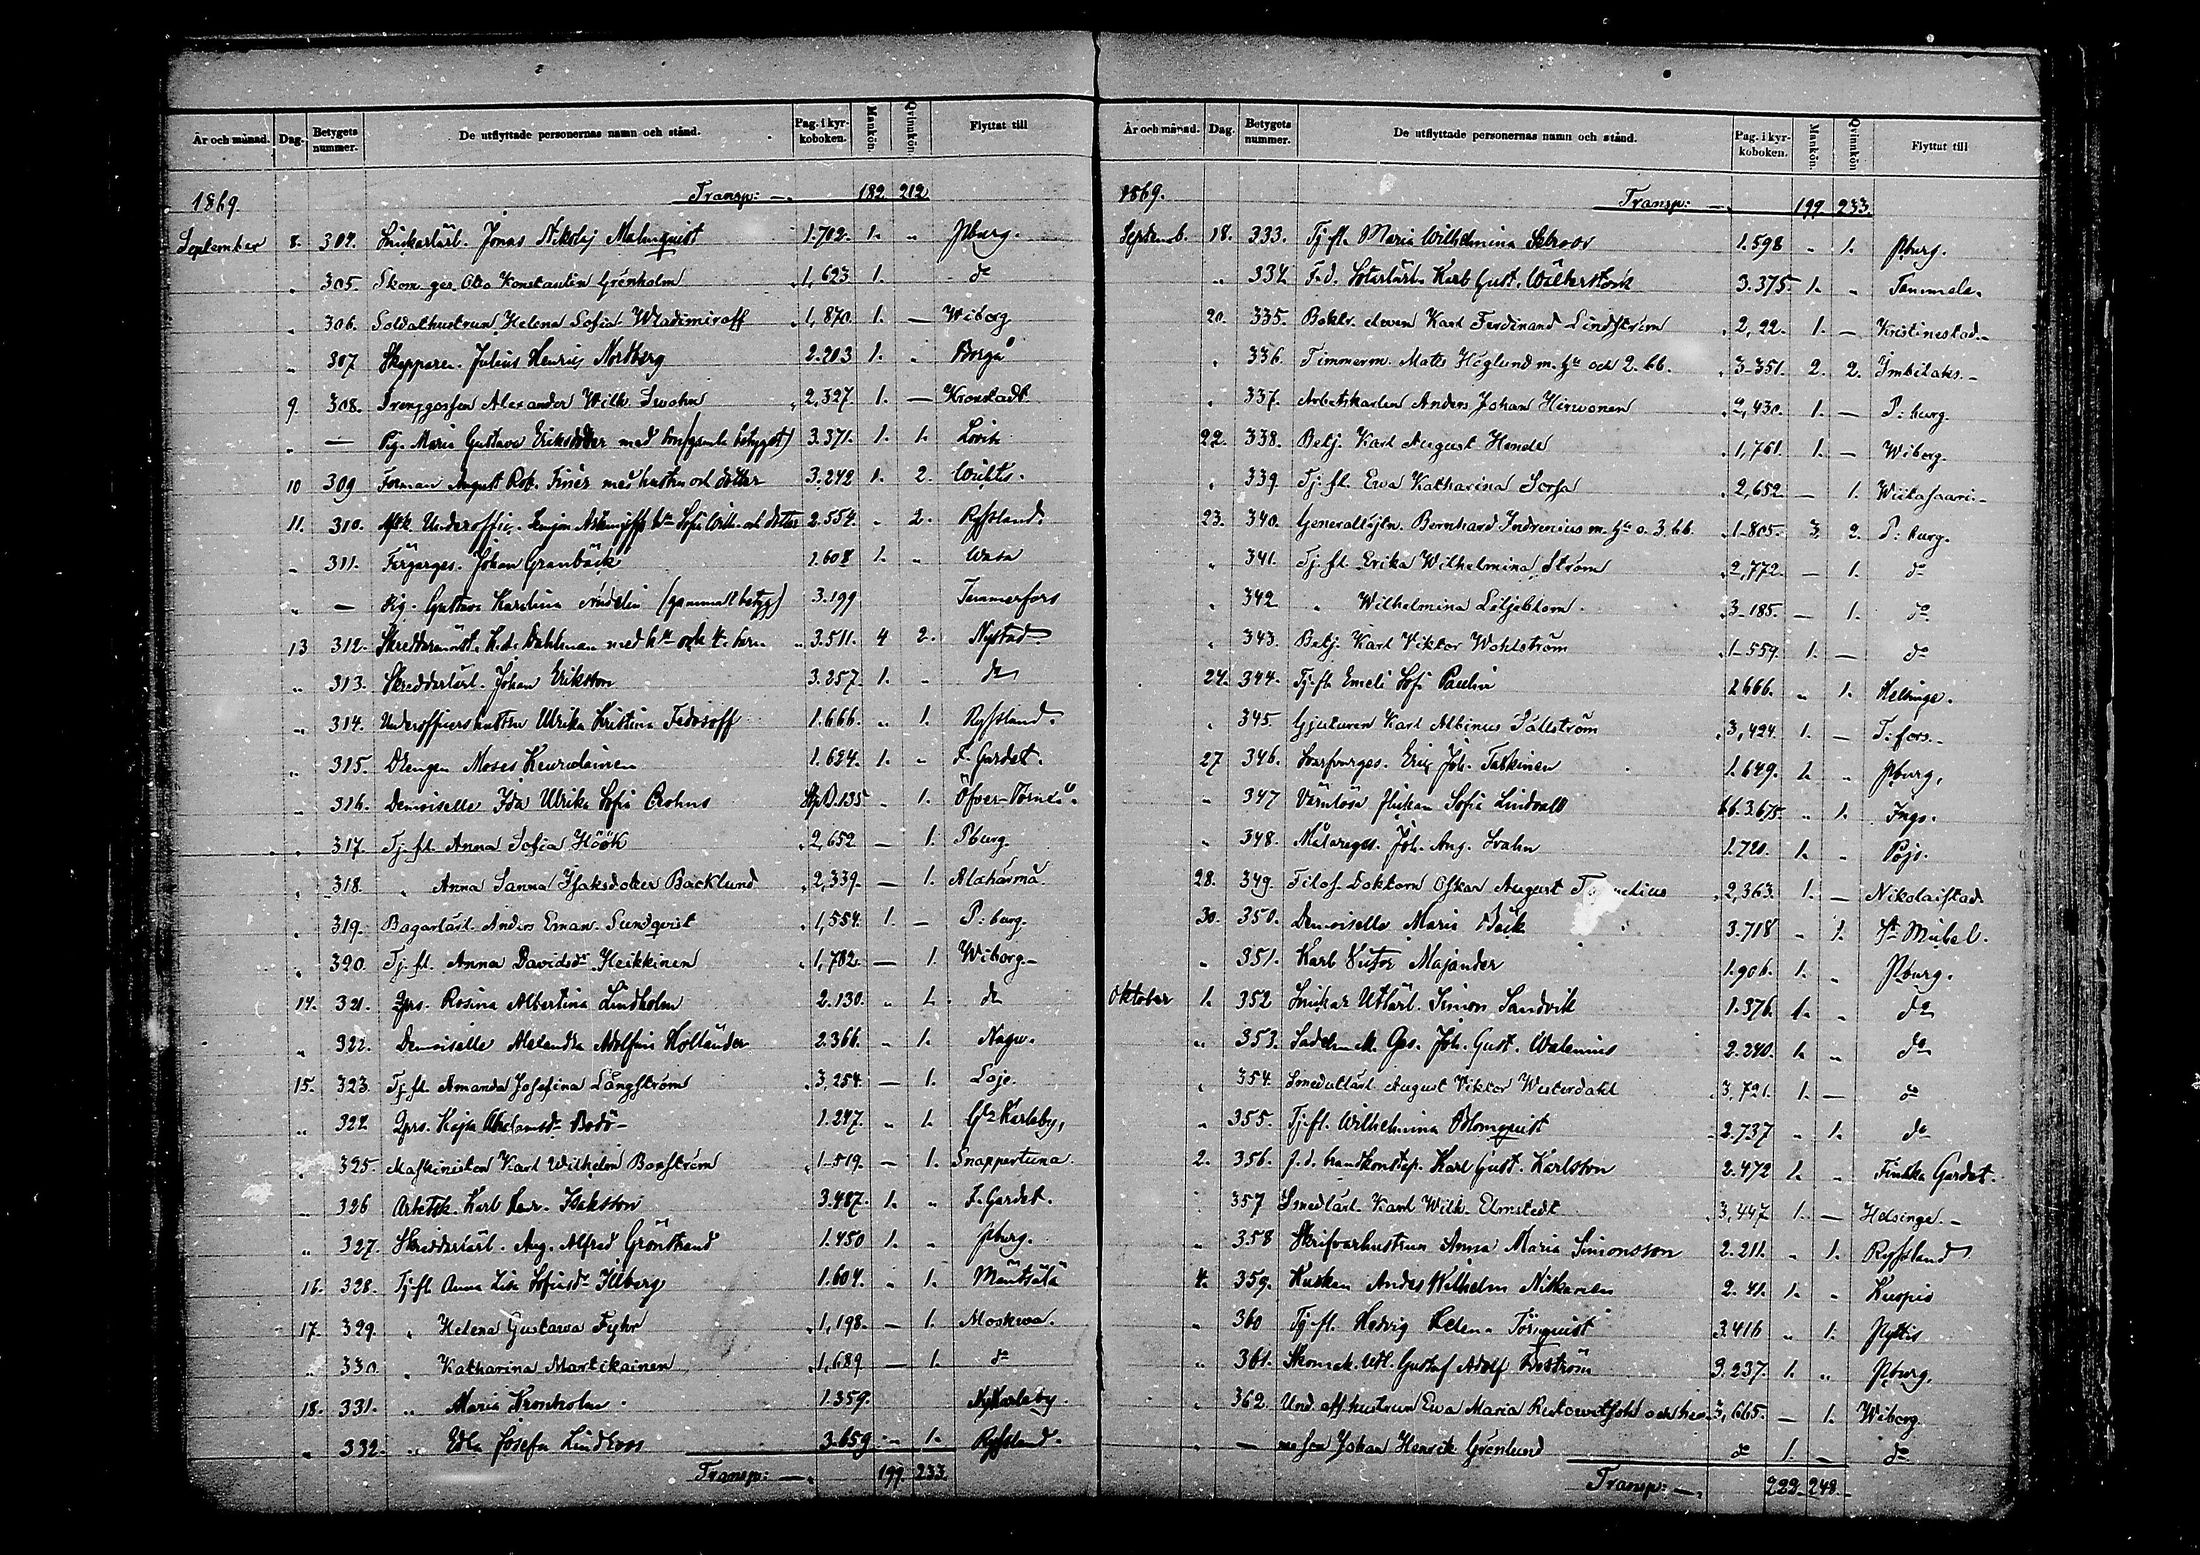 År och månad. Dag. Betygets nummer. De utflyttade personernas namn och stånd. Pag. i kyrkoboken. Mankön. Qvinnkön. Flyttat till
1869. Transp: 182. 212
September 8. 304. Snickarlärl. Jonas Nikolaj Malmquist 1.702. 1. " Pburg.
" 305. Skom. ges. Otto Konstantin Grönholm 1,623 1. do
" 306. Soldathustrun Helena Sofia Wladimiroff 1,870. 1. — Wiborg
" 307 Skepparen Julius Henrik Nordberg 2.203 1. " Borgå
9. 308. Drenggossen Alexander Wilh. Swahn 2,327 1. — Kronstadt.
" — Pig. Maria Gustava Eriksdotter med son (gamla betyget) 3.371. 1. 1.
10 309 Forman August Rob. med hustru och dotter 3.242 1. 2.
11. 310. Underoffic. Sofia Wilh. och dotter 2.554. " 2. Ryssland.
" 311. Färgarges. Johan Granbäck 1.608 1. " Wasa
" — Pig. Gustava Karolina (gammalt betyg) 3.199 Tammerfors
13 312. Skreddaremäst. Dahlman med hu och 4 barn 3.511. 4 2. Nystad
" 313. Skreddarlärl. Johan Eriksson 3.257. 1. " do
" 314. Underofficershustrun Ulrika Kristina Fedosoff 1.666. " 1. Ryssland.
" 315. Drengen Moses Keurulainen 1.624. 1. " F. Gardet.
" 316. Demoiselle Ida Ulrika Sofia Crohns 135 " 1. Öfver-Torneå.
" 317. Tj. fl. Anna Sofia Höök 2,652 — 1. Pburg.
" 318. " Anna Sanna Isaksdotter Backlund 2,339. — 1. Alahärmä.
" 319. Bagarlärl. Anders Eman. Sundqvist 1,554. 1. — P:burg.
" 320. Tj. fl. Anna Davidsdr Heikkinen 1,782. — 1. Wiborg.
14. 321. Rosina Albertina Lindholm 2.130. " 1. do
" 322. Demoiselle Alexandra Adolfina Holländer 2.366. " 1. Nagu.
15. 323. Tj. fl. Amanda Josefina Långström 3,254. — 1. Lojo.
" 324. Kajsa Bodö 1.247. " 1. Gla Karleby,
" 325. Maskinisten Karl Wilhelm Boxström 1-519. — 1. Snappertuna.
" 326 Arbetsk. Karl Isaksson 3.487. 1. " F. Gardet.
" 327. Skreddarlärl. Aug. Alfred Grönstrand 1.450 1. " Pburg.
16. 328. Tj. fl. Anna Lisa 1.604. " 1. Mäntsälä
17. 329. " Helena Gustava Fyhr 1,198. — 1. Moskwa.
" 330. " Katharina Martikainen 1,689 — 1. do
18. 331. " Maria Kronholm 1.359. Nykarleby.
" 332. " Edla Josefa Lindroos 3.659. - 1. Ryssland.
Transp: 199. 233.
År och månad. Dag. Betygets nummer. De utflyttade personernas namn och stånd. Pag. i kyrkoboken. Mankön. Qvinnkön Flyttat till
1869. Transp: 199 233.
Septemb. 18. 333. Tj. fl. Maria Wilhelmina 1.598 " 1. Pburg.
" 334. F.d. Karl Gust. 3.375 1. " Tammela.
20. 335. Boktr. eleven Karl Ferdinand Lindström 2,22. 1. — Kristinestad.
" 336. Timmerm. Matts Höglund m. hu och 2. bb. 3-351. 2. 2. Imbilaks.
" 337. Arbetskarlen Anders Johan Hirwonen 2,430. 1. — P:burg.
22. 338. Betj. Karl August Hende 1,761. 1. — Wiborg.
" 339. Tj. fl. Ewa Katharina Sorsa 2,652. — 1. Wiitasaari.
23. 340. Generallöjtn. Bernhard Indrenius m. hu o. 3. bb. 1-805. 3. 2. P:burg.
" 341. Tj. fl. Erika Wilhelmina Ström 2,772. — 1. do
" 342 " Wilhelmina Liljeblom. 3-185. — 1. do
" 343. Betj. Karl Viktor Wahlström 1-559. 1. — do
24. 344. Tj. fl. Emeli Sofi Paulin 2666. " 1. Helsinge.
" 345. Gjutaren Karl Albinus Sällström 3,424. 1. — T:fors.
27 346. Garfvarges. Erik Joh. Taskinen 1.649. 1. " Pburg.
" 347 Värnlösa flickan Sofia Lindvall 66.3.675. " 1. Ingo.
" 348. Målareges. Joh. Aug. Svahn 1.720. 1. " Pojo.
28. 349. Filos. Doktorn Oskar August 2,363. 1. — Nikolaistad.
30. 350. Demoiselle Maria Bäck 3.718 " 1. St Michel.
" 351. Karl Victor Majander 1.906. 1. " Pburg.
Oktober 1. 352 Snickar Utlärl. Simon Sandvik 1.376. 1. " do
" 353. Sadelmak. Ges. Joh. Gust. Walenius 2.240. 1. " do
" 354. Smedutlärl. August Viktor Westerdahl 3,721. 1. — do
" 355. Tj. fl. Wilhelmina Blomquist 2.737 " 1. do
2. 356. f.d. brandkonstap. Karl Gust. Karlsson 2.472 1. " Finska Gardet.
" 357 Smedlärl. Karl Wilh. Elmstedt 3,447. 1. — Helsinge.
" 358 Skrifvarhustrun Anna Maria Simonsson 2.211. " 1. Ryssland
4. 359. Kusken Anders Wilhelm Niskanen 2.41. 1. " Kuopio
" 360 Tj. fl. Hedvig Helena Törnquist 3.416 " 1. Pyttis
" 361. Skomak. Utl. Gustaf Adolf Boström 3.237. 1. " Pburg.
" 362. Und. off. hustrun Ewa Maria och 3,665. — 1. Wiborg
" — son Johan Henrik Grönlund do 1. — do
Transp: 222. 248.